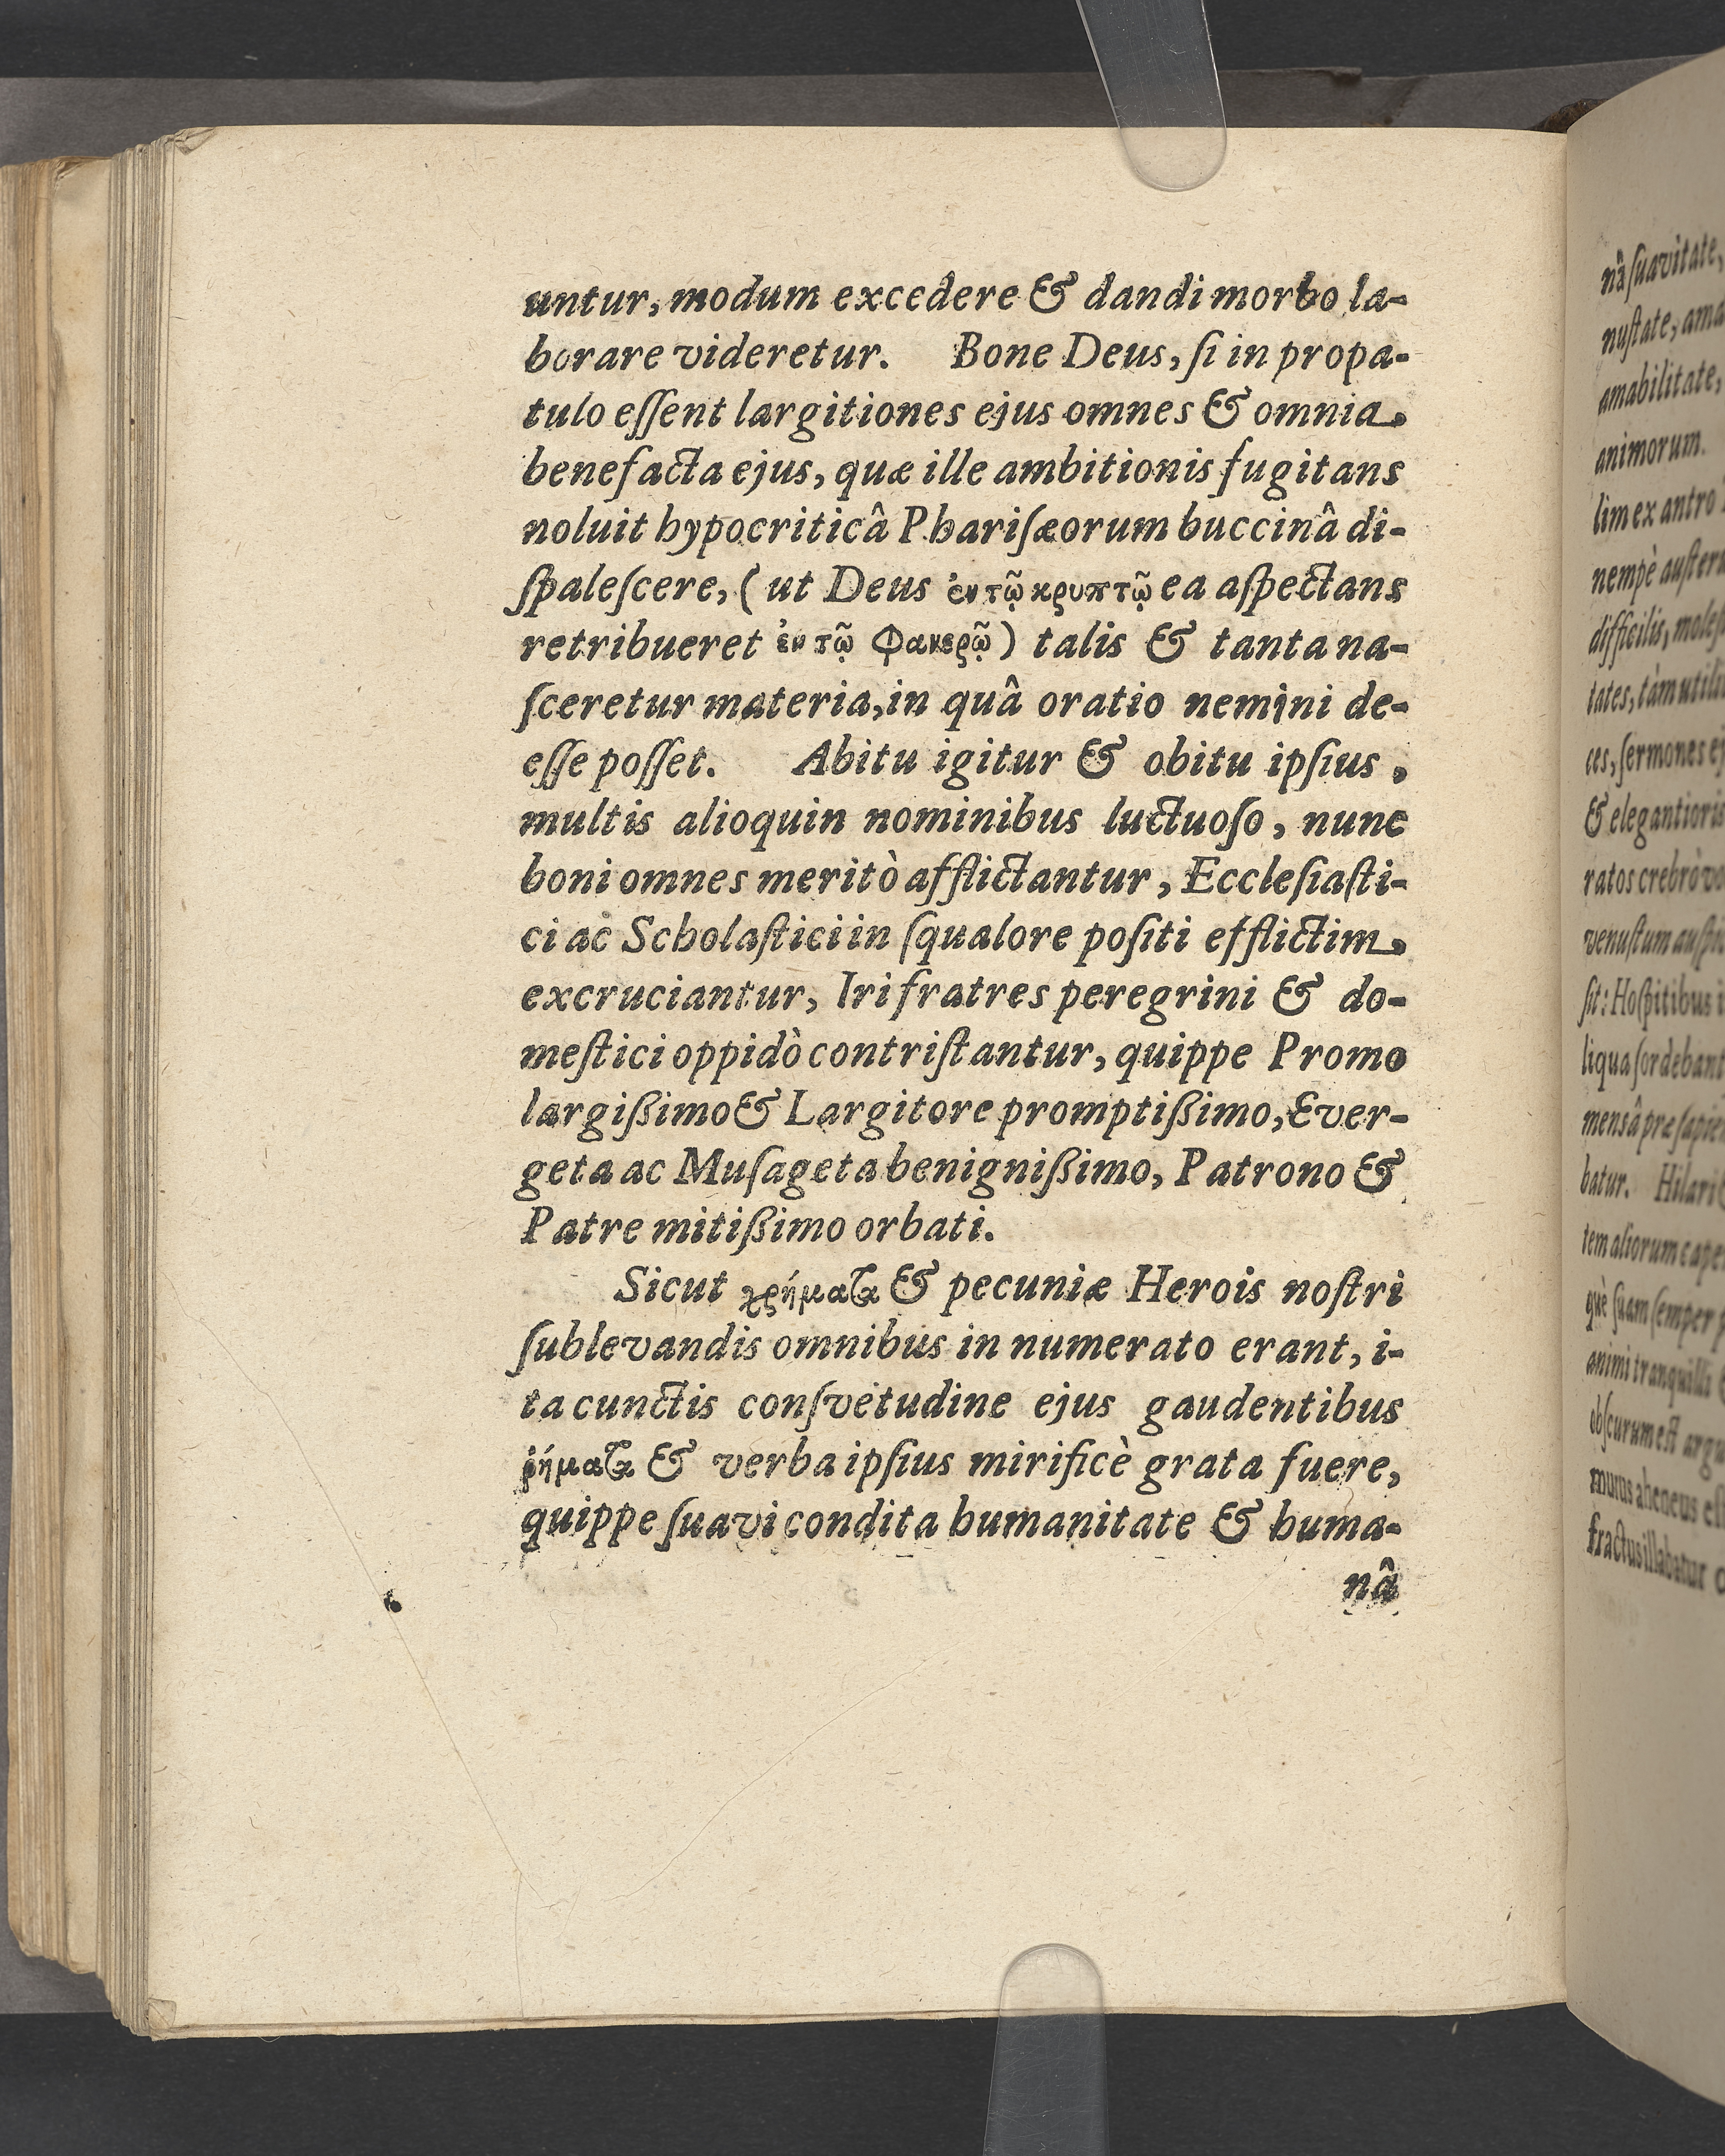 untur, modum excedere & dandi morbo la-
borare videretur. Bone Deus, ſi in propa-
tulo eſſent largitiones ejus omnes & omnia
benefacta ejus, quæ ille ambitionis fugitans
noluit hypocriticâ Phariſæorum buccinâ di-
ſpaleſcere, (ut Deus ἐν τῷ κρυπτῷ ea aſpectans
retribueret ἐν τῷ φανερῷ) talis & tanta na-
ſceretur materia, in quâ oratio nemini de-
eſſe poſſet. Abitu igitur & obitu ipſius,
multis alioquin nominibus luctuoſo, nunc
boni omnes meritò afflictantur, Eccleſiaſti-
ci ac Scholaſtici in ſqualore poſiti efflictim
excruciantur, Iri fratres peregrini & do-
meſtici oppidò contriſtantur, quippe Promo
largißimo & Largitore promptißimo, Ever-
geta ac Muſageta benignißimo, Patrono &
Patre mitißimo orbati.
Sicut χρήματα & pecuniæ Herois noſtri
ſublevandis omnibus in numerato erant, i-
ta cunctis conſvetudine ejus gaudentibus
ῥήματα & verba ipſius mirificè grata fuere,
quippe ſuavi condita humanitate & huma-
nâ
nâ ſuavitate,
nuſtate, ama
amabilitate,
animorum.
lim ex antro
nempè auſter
difficilis, moleſ
tates, tàm utili
ces, ſermones ej
& elegantioris
ratos crebrò vo
venuſtum auſpi
ſit: Hoſpitibus i
liqua ſordebant
mensâ præ ſapie
batur. Hilari
tem aliorum cape
què ſuam ſemper p
animi tranquilli
obſcurum eſt argu
murus aheneus eſ
fractus illabatur o